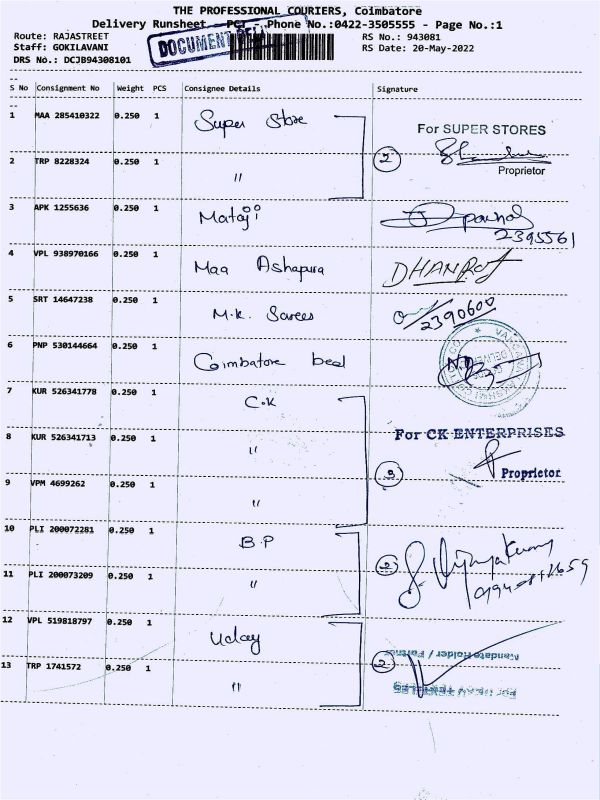 THE PROFESSIONAL COURIERS, Coimbatore
Delivery Runsheet - PCT - Phone No.:0422-3505555 - Page No.:1
Route: RAJASTREET RS No.: 943081
Staff: GOKILAVANI RS Date: 20-May-2022
DRS No.: DCJB94308101
DOCUMENT
S No Consignment No Weight PCS Consignee Details Signature
1 MAA 285410322 0.250 1 Super Store
For SUPER STORES
2 TRP 8228324 0.250 1 " 2
Proprietor
3 APK 1255636 0.250 1 Mataji
2395561
4 VPL 938970166 0.250 1 Maa Ashapura DHANRAJ
5 SRT 14647238 0.250 1 M.K. Sarees 2390600
6 PNP 530144664 0.250 1 Coimbatore
7 KUR 526341778 0.250 1 C.K
8 KUR 526341713 0.250 1 " For CK ENTERPRISES
Proprietor
9 VPM 4699262 0.250 1 " 3
10 PLI 200072281 0.250 1 B.P
11 PLI 200073209 0.250 1 " 2
12 VPL 519818797 0.250 1 Uday
Mandate Holder / Partner
13 TRP 1741572 0.250 1 " 2